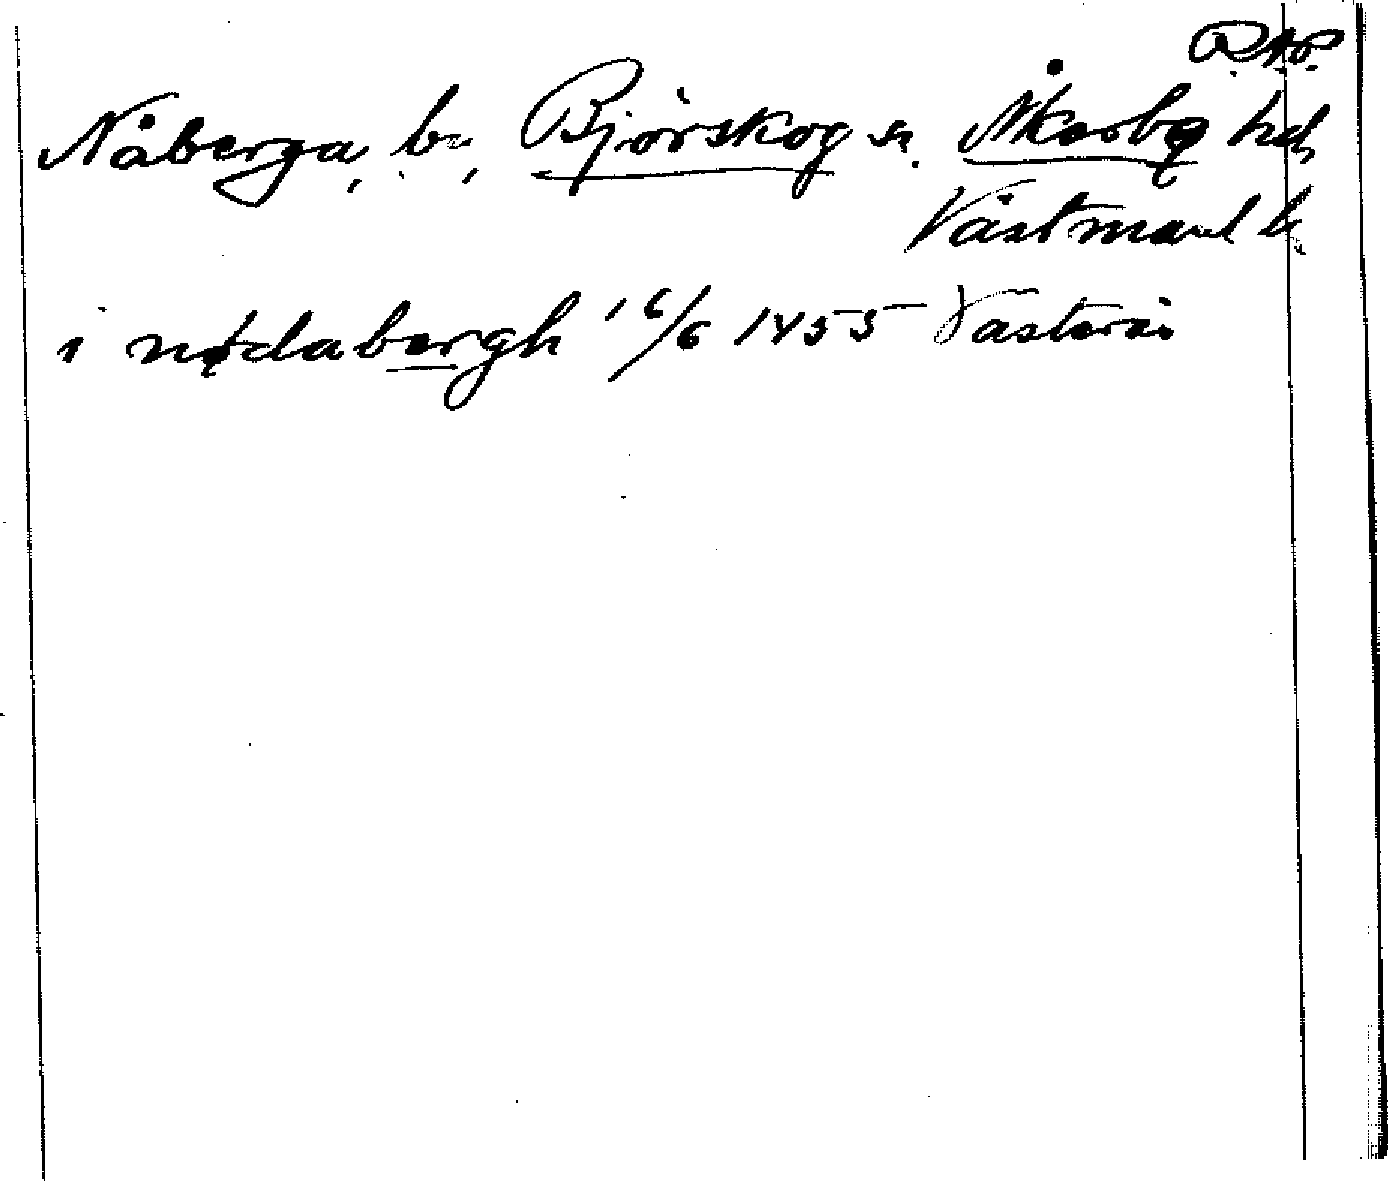 R.A.P.
Nåberga, by, Björskog sn. Åkerbo hd,
Västmanl l.
i nødabergh 16/6 1455 Västerås